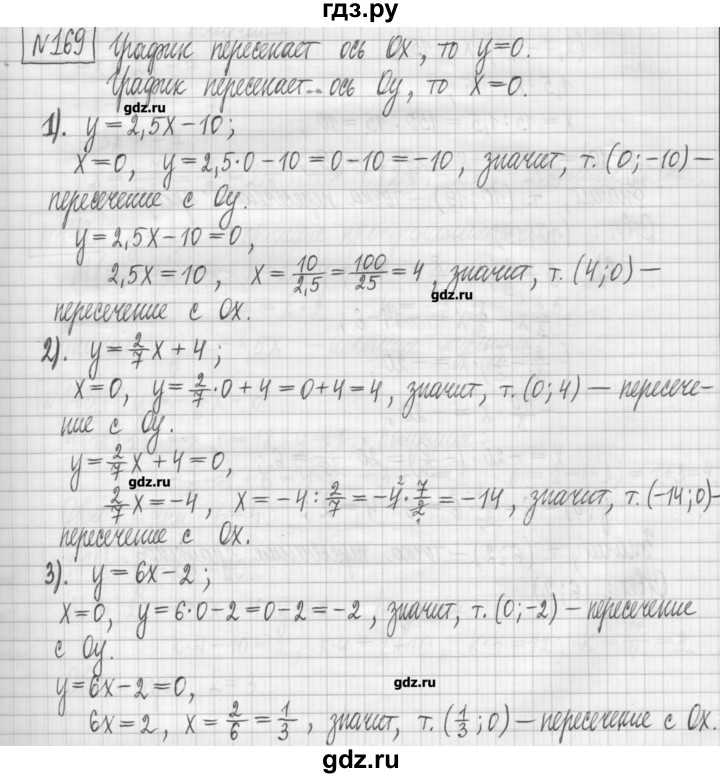 гдз.ру
№169 График пересекает ось Ox, то y=0.
График пересекает ось Oy, то x=0.
gdz.ru
1). y=2,5x-10;
x=0, y=2,5·0-10=0-10=-10, значит, т. (0;-10)—
пересечение с Oy.
y=2,5x-10=0,
2,5x=10, x=10/2,5=100/25=4, значит, т. (4;0)—
gdz.ru
пересечение с Ox.
2). y=2/7x+4;
x=0, y=2/7·0+4=0+4=4, значит, т. (0;4) — пересече-
ние с Oy.
y=2/7x+4=0,
gdz.ru
2/7x=-4, x=-4:2/7=-4·7/2=-14, значит, т. (-14;0)-
пересечение с Ox.
3). y=6x-2;
x=0, y=6·0-2=0-2=-2, значит, т. (0;-2) — пересечение
с Oy.
y=6x-2=0,
gdz.ru
6x=2, x=2/6=1/3, значит, т. (1/3;0)—пересечение с Ox.
gdz.ru